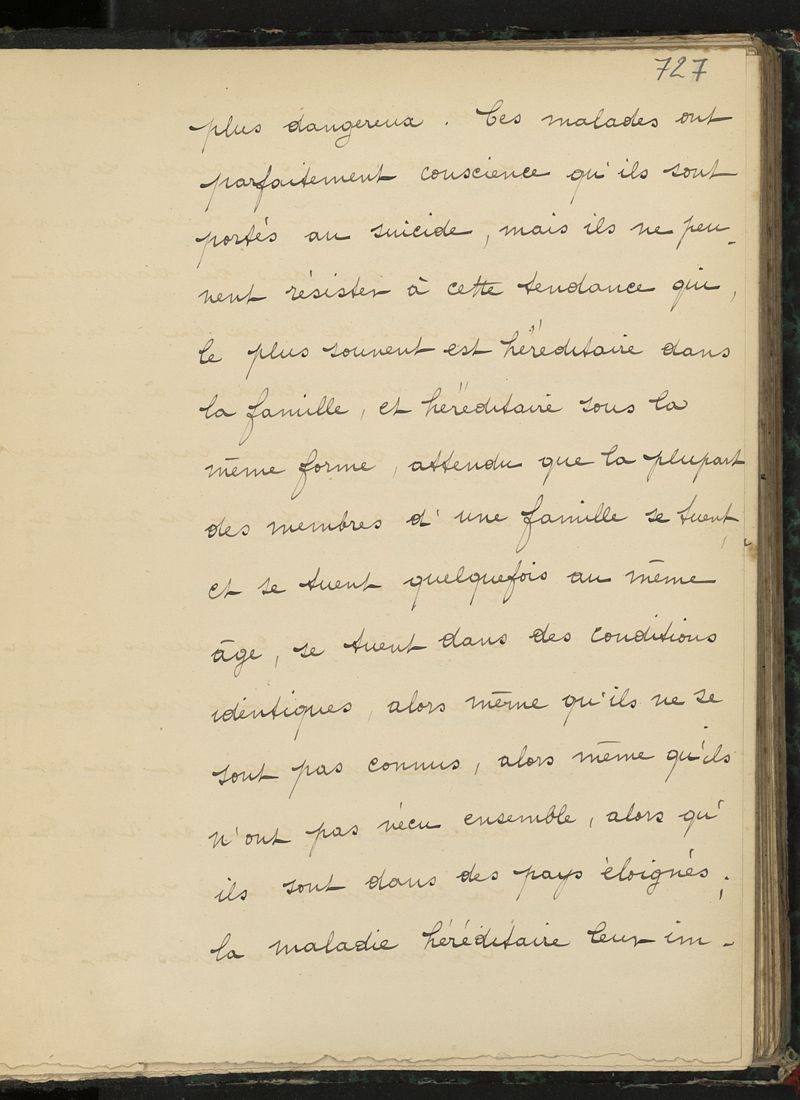 727
plus dangereux. Ces malades ont
parfaitement conscience qu'ils sont
portés au suicide, mais ils ne peu-
vent résister à cette tendance qui,
le plus souvent est héréditaire dans
la famille, et héréditaire sous la
même forme, attendu que la plupart
des membres d'une famille se tuent,
et se tuent quelquefois au même
âge, se tuent dans des conditions
identiques, alors même qu'ils ne se
sont pas connus, alors même qu'ils
n'ont pas vécu ensemble, alors qu'
ils sont dans des pays éloignés;
la maladie héréditaire leur im-